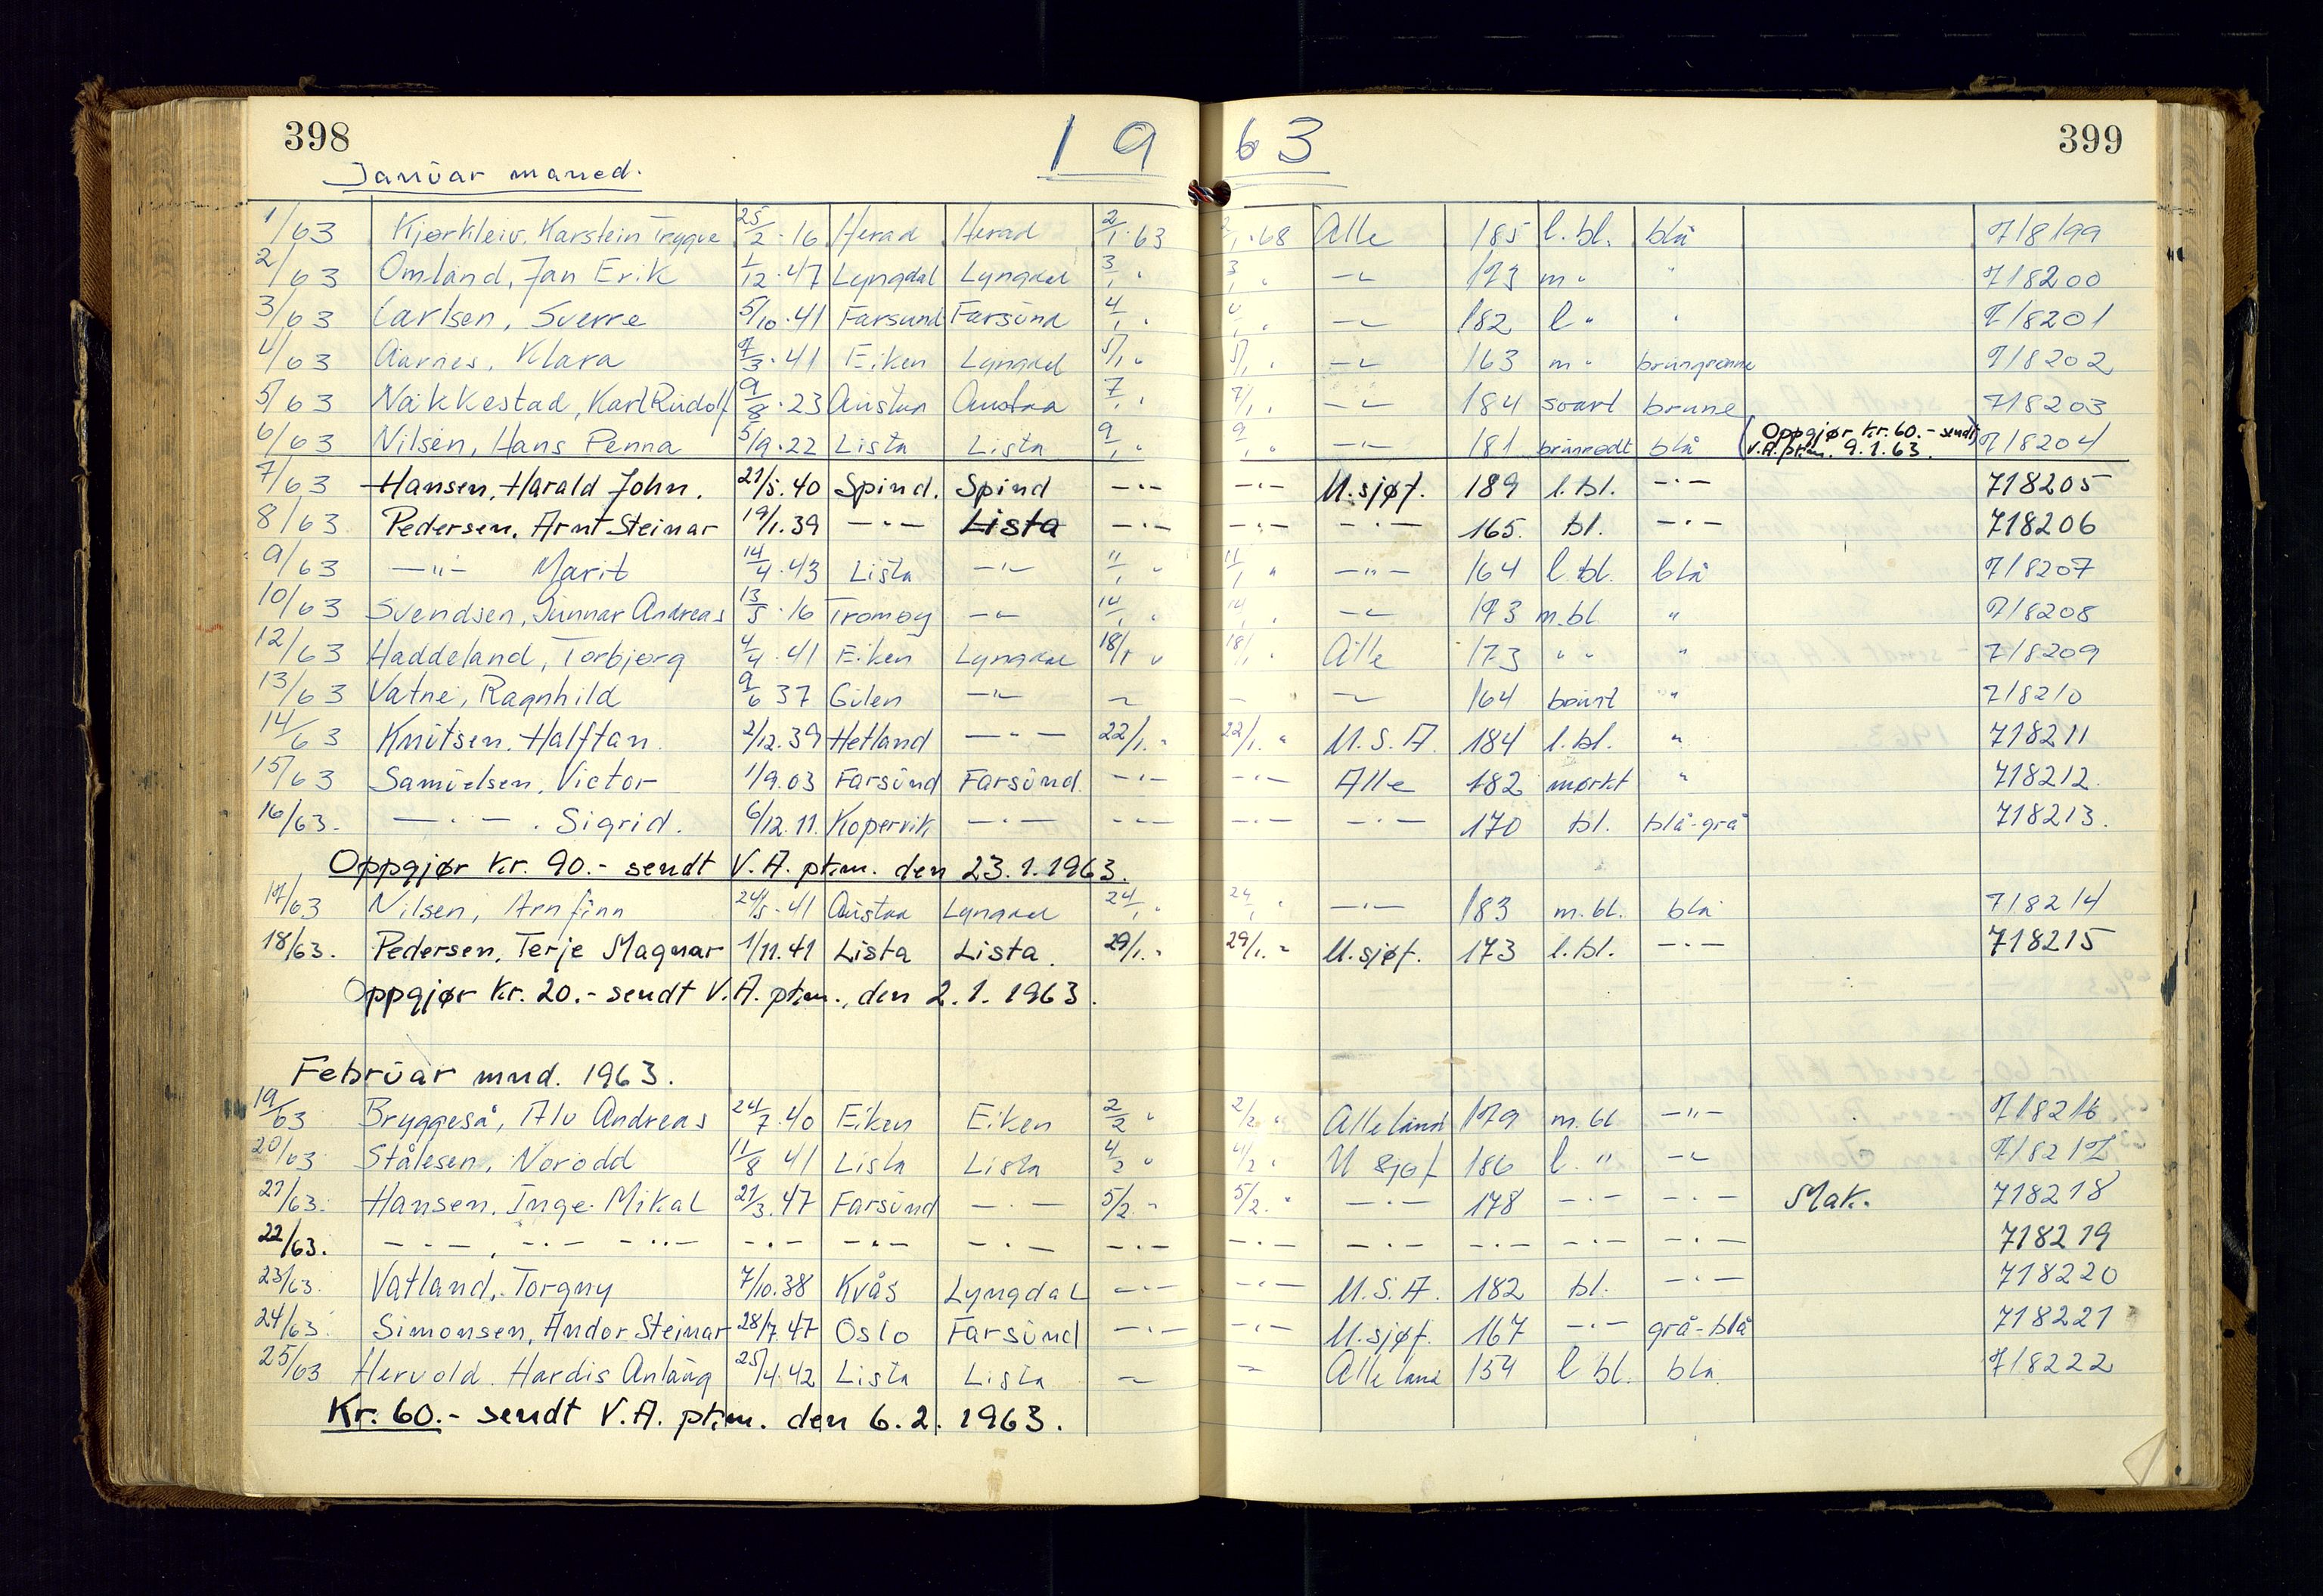 398
19
63
399
Januar maned.
1/63 Kjørkleiv, Karstein Trygve 25/2·16 Herad Herad 2/1·63 2/1·68 Alle 185 l. bl. blå 718199
2/63 Omland, Jan Erik 1/12·47 Lyngdal Lyngdal 3/1 " 3/1 " —"— 173 m " " 718200
3/63 Carlsen, Sverre 5/10·41 Farsund Farsund 4/1 " 4/1 " —"— 182 l " " 718201
4/63 Aarnes, Klara 7/3·41 Eiken Lyngdal 5/1 " 5/1 " —"— 163 m " brungrønne 718202
5/63 Nakkestad, Karl Rudolf 9/8·23 Austad Austad 7/1 " 7/1 " —"— 184 svart brune 718203
6/63 Nilsen, Hans Penna 5/9·22 Lista Lista 9/1 " 9/1 " —"— 181 brunrødt blå (Oppgjør kr. 60.- sendt V.A. ptm. 9.1.63.) 718204
7/63 Hansen, Harald John. 21/5.40 Spind. Spind —·— —·— U.sjøf. 189 l. bl. —·— 718205
8/63 Pedersen, Arnt Steinar 19/1.39 —·— Lista —·— —·— —·— 165. bl. —·— 718206
9/63 —"— Marit 14/4·43 Lista —"— 11/1 " 11/1 " —"— 164 l. bl. blå 718207
10/63 Svendsen, Gunnar Andreas 13/5·16 Tromøy —"— 14/1 " 14/1 " —"— 173 m.bl " 718208
12/63 Haddeland, Torbjørg 4/4·41 Eiken Lyngdal 18/1 " 18/1 " Alle 173 " " " 718209
13/63 Vatne, Ragnhild 9/6 37 Gulen —"— — — — 164 brunt " 718210
14/63 Knutsen, Halftan. 2/12.39 Hetland —·— 22/1. " 22/1. " U.S.A. 184 l. bl. " 718211
15/63 Samuelsen, Victor 1/9.03 Farsund Farsund. —·— —·— Alle 182 mørkt " 718212.
16/63. —·—. Sigrid. 6/12.11. Kopervik —·— —·— —·— —·— 170 bl. blå-grå 718213.
Oppgjør kr. 90.- sendt V.A. ptm. den 23.1.1963.
17/63 Nilsen, Arnfinn 24/5·41 Austad Lyngdal 24/1 " 24/1 " —·— 183 m. bl. blå 718214
18/63. Pedersen, Terje Magnar 1/11.41 Lista Lista. 29/1. " 29/1. " U.sjøf. 173 l. bl. —·— 718215
Oppgjør kr. 20.- sendt V.A. ptm., den 2.1.1963.
Februar mnd. 1963.
19/63 Bryggeså, Alv Andreas 24/7·40 Eiken Eiken 2/2 " 2/2 " Alle land 179 m. bl —"— 718216.
20/63 Stålesen, Norodd 11/8 41 Lista Lista 4/2 " 4/2 " U sjøf 186 l. " —"— 718217
21/63. Hansen, Inge Mikal 21/3.47 Farsund —·— 5/2. " 5/2. " —·— 178 —·— —·— Mak. 718218
22/63. —·—, —·— —··— —·— —·— —·— —·— —·— —·— —·— —·— —·— 718219
23/63. Vatland, Torgny 7/10.38 Kvås Lyngdal —·— —·— U.S.A. 182 bl. —·— 718220
24/63. Simonsen, Andor Steinar 28/7.47 Oslo Farsund —·— —·— U.sjøf. 167 —·— grå-blå 718221
25/63 Hervold Hardis Anlaug 25/4.42 Lista Lista — — Alle land 154 l bl. blå 718222
Kr. 60.- sendt V.A. ptm. den 6.2.1963.